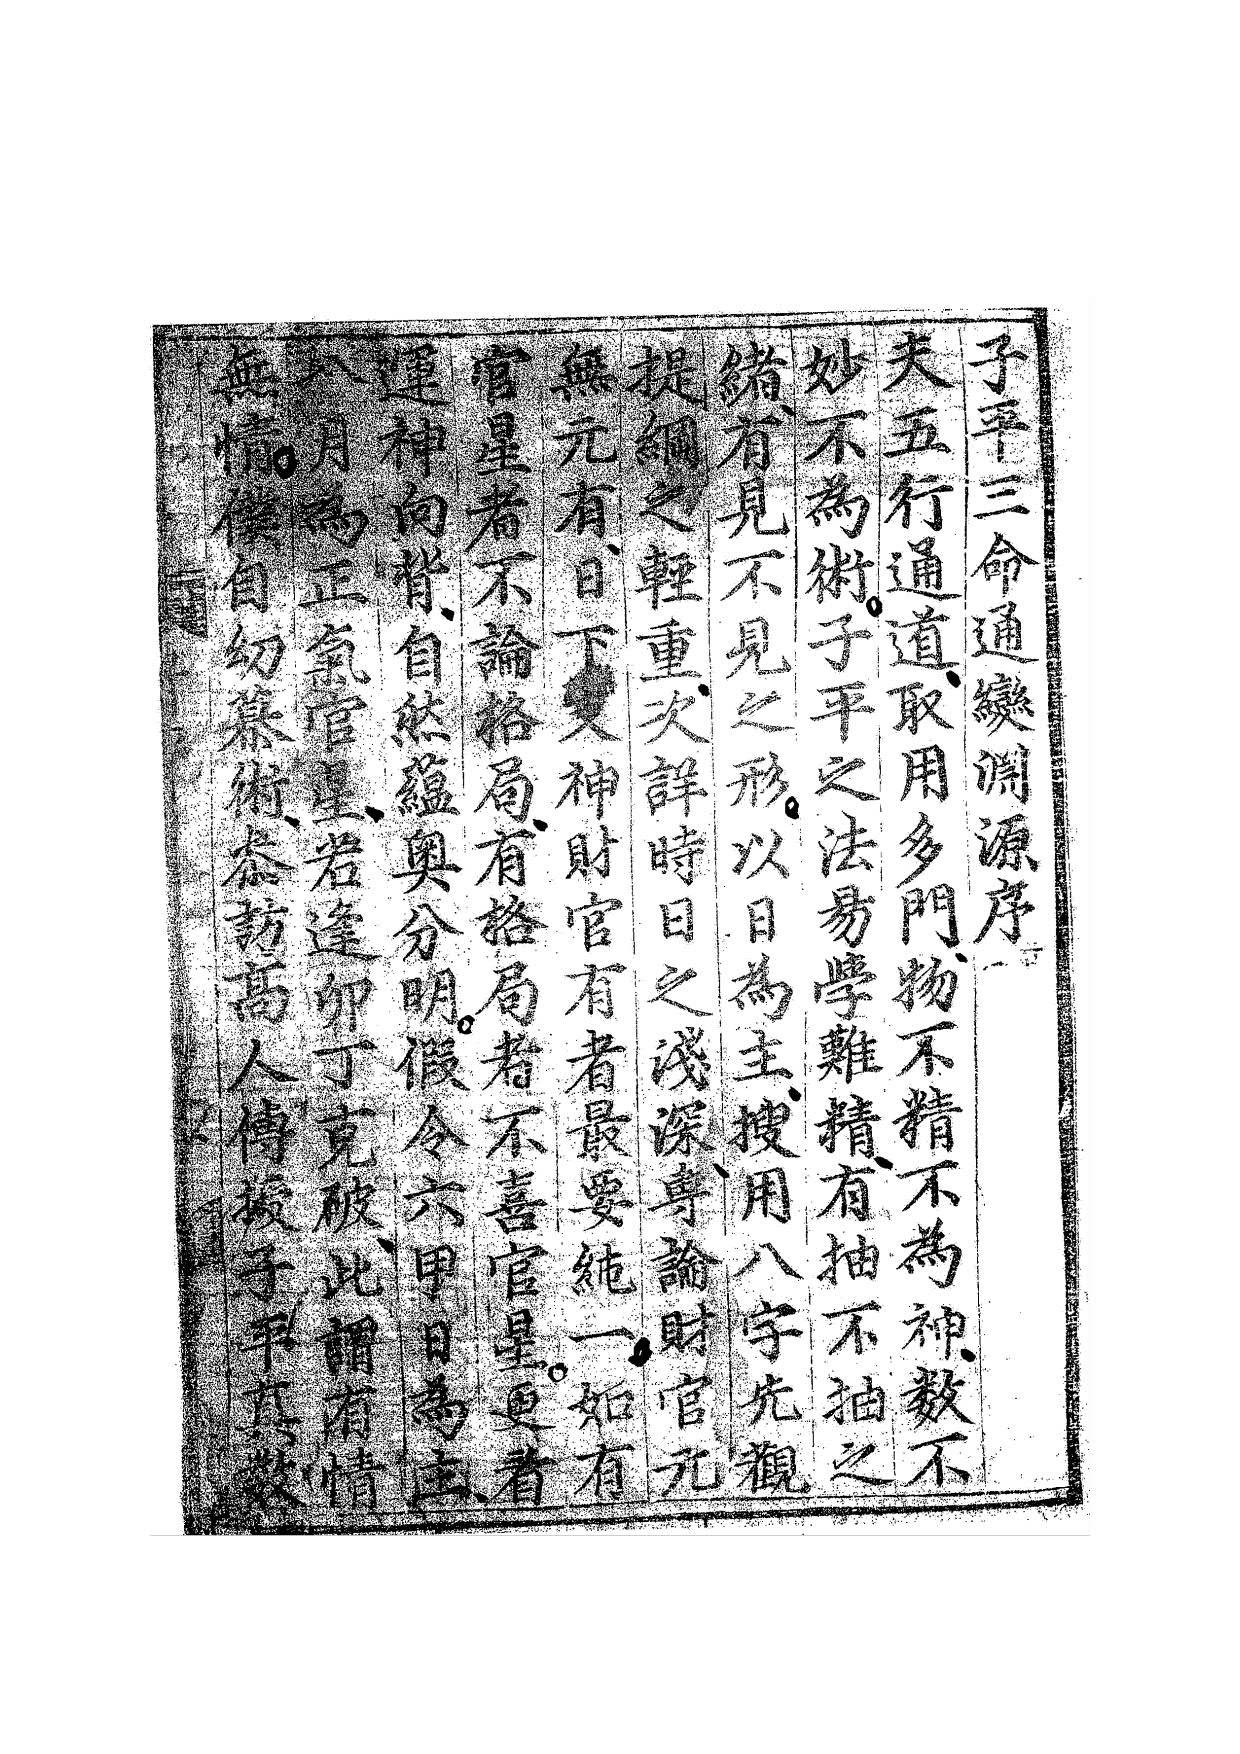 子平三命通變淵源序
夫五行通道、取用多門、物不精不為神、数不
妙不為術。子平之法易學難精、有抽不抽之
緒、有見不見之形。以日為主、搜用八字先觀
提綱之輕重、次詳時日之淺深、專論財官元
無元有、日下 神財官有者最要純一。如有
官星者不論格局、有格局者不喜官星。更看
運神向背、自然蘊奥分明。假令六甲日為主、
八月為正氣官星、若逢卯丁克破、此謂有情
無情。僕自幼慕術、叅訪高人傳授子平真數